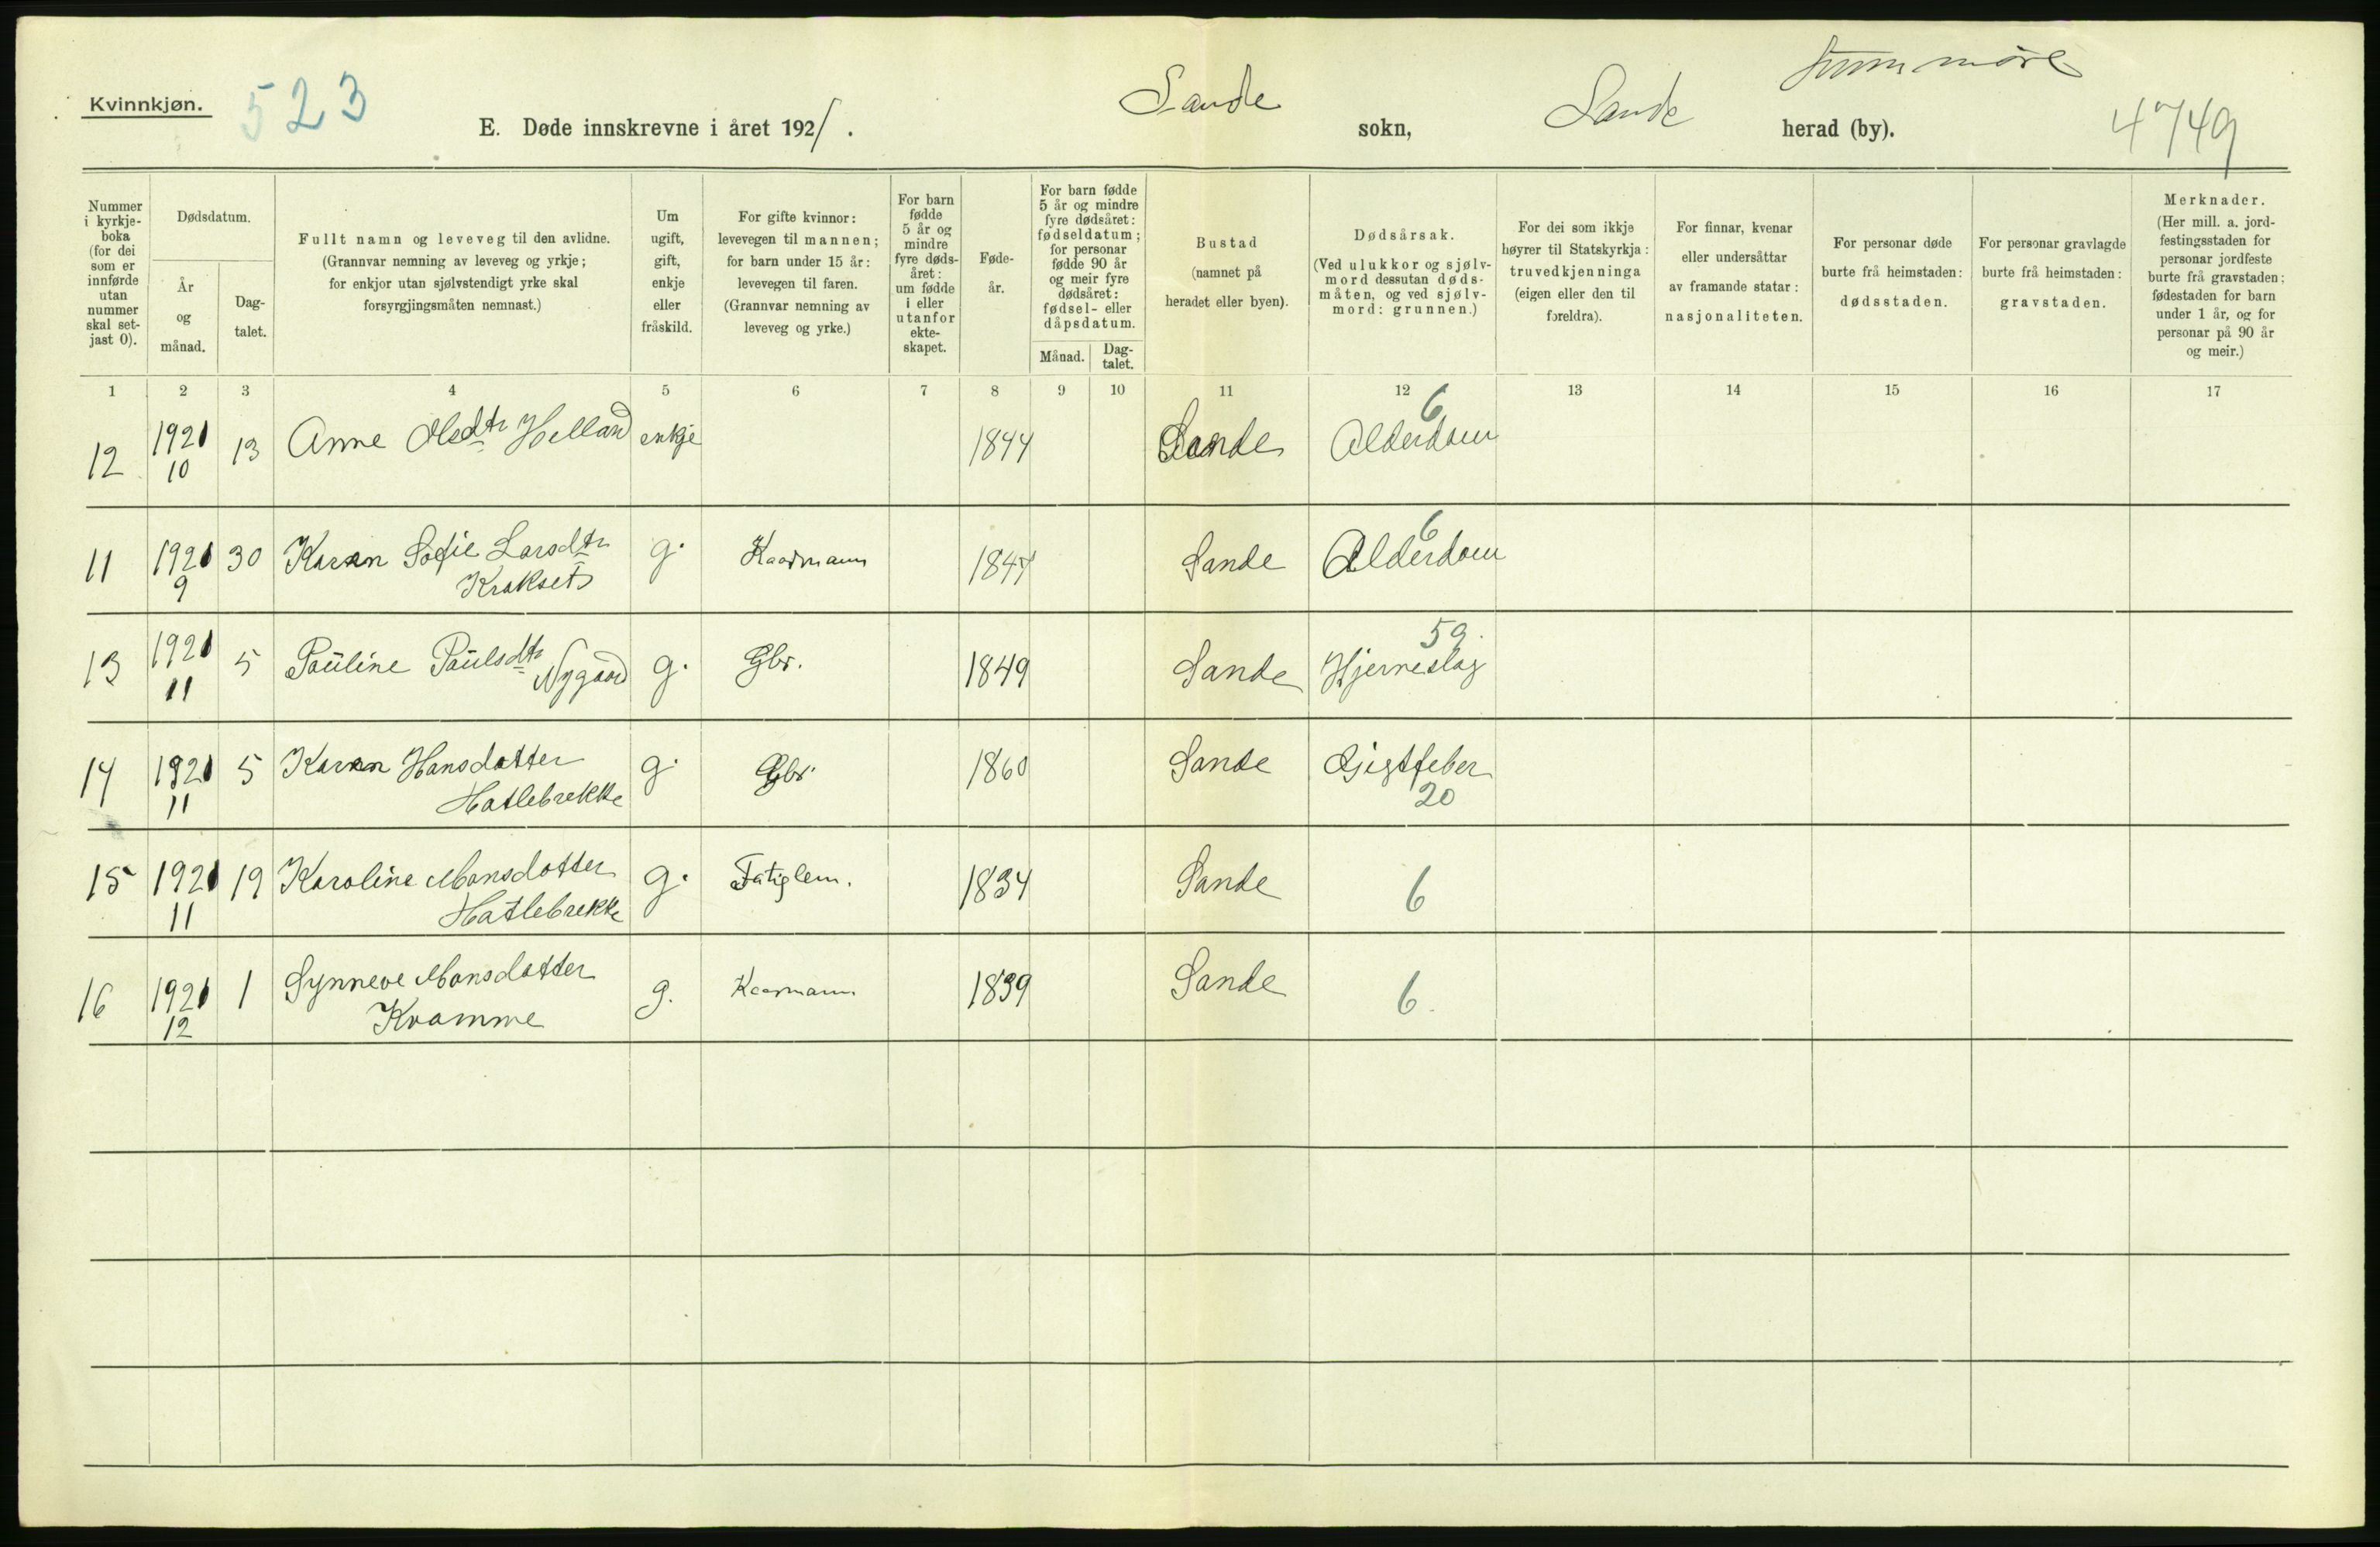 Kvinnkjøn.
523
E. Døde innskrevne i året 1921.
Sande sokn,
Sande herad (by).
Sunnmøre
4749
Nummer i kyrkje-boka (for dei som er innførde utan nummer skal set-jast 0).
Dødsdatum.
År og månad.
Dag-talet.
Fullt namn og leveveg til den avlidne.
(Grannvar nemning av leveveg og yrkje;
for enkjor utan sjølvstendigt yrke skal
forsyrgjingsmåten nemnast.)
Um ugift, gift, enkje eller fråskild.
For gifte kvinnor:
levevegen til mannen;
for barn under 15 år:
levevegen til faren.
(Grannvar nemning av
leveveg og yrke.)
For barn fødde 5 år og mindre fyre døds-året: um fødde i eller utanfor ekte-skapet.
Føde-år.
For barn fødde 5 år og mindre fyre dødsåret: fødseldatum; for personar fødde 90 år og meir fyre dødsåret: fødsel- eller dåpsdatum.
Månad.
Dag-talet.
Bustad
(namnet på
heradet eller byen).
Dødsårsak.
(Ved ulukkor og sjølv-
mord dessutan døds-
måten, og ved sjølv-
mord: grunnen.)
For dei som ikkje
høyrer til Statskyrkja:
truvedkjenninga
(eigen eller den til
foreldra).
For finnar, kvenar
eller undersåttar
av framande statar:
nasjonaliteten.
For personar døde
burte frå heimstaden:
dødsstaden.
For personar gravlagde
burte frå heimstaden:
gravstaden.
Merknader.
(Her mill. a. jord-
festingsstaden for
personar jordfeste
burte frå gravstaden;
fødestaden for barn
under 1 år, og for
personar på 90 år
og meir.)
1 2 3 4 5 6 7 8 9 10 11 12 13 14 15 16 17
12 1921 10 13 Anne Olsdtr Helland enkje 1844 Sande Alderdom 6
11 1921 9 30 Karen Sofie Larsdtr Kraksets g. Kaarmann 1847 Sande Alderdom 6
13 1921 11 5 Pauline Paulsdtr Nygaard g. Gbr. 1849 Sande Hjerneslag 59.
14 1921 11 5 Karen Hansdatter Hatlebrekke g. Gbr. 1860 Sande Gigtfeber 20
15 1921 11 19 Karoline Monsdotter Hatlebrekke g. Fatiglem. 1834 Sande 6
16 1921 12 1 Synneve Monsdatter Kvamme g. Kaarmann 1839 Sande 6.